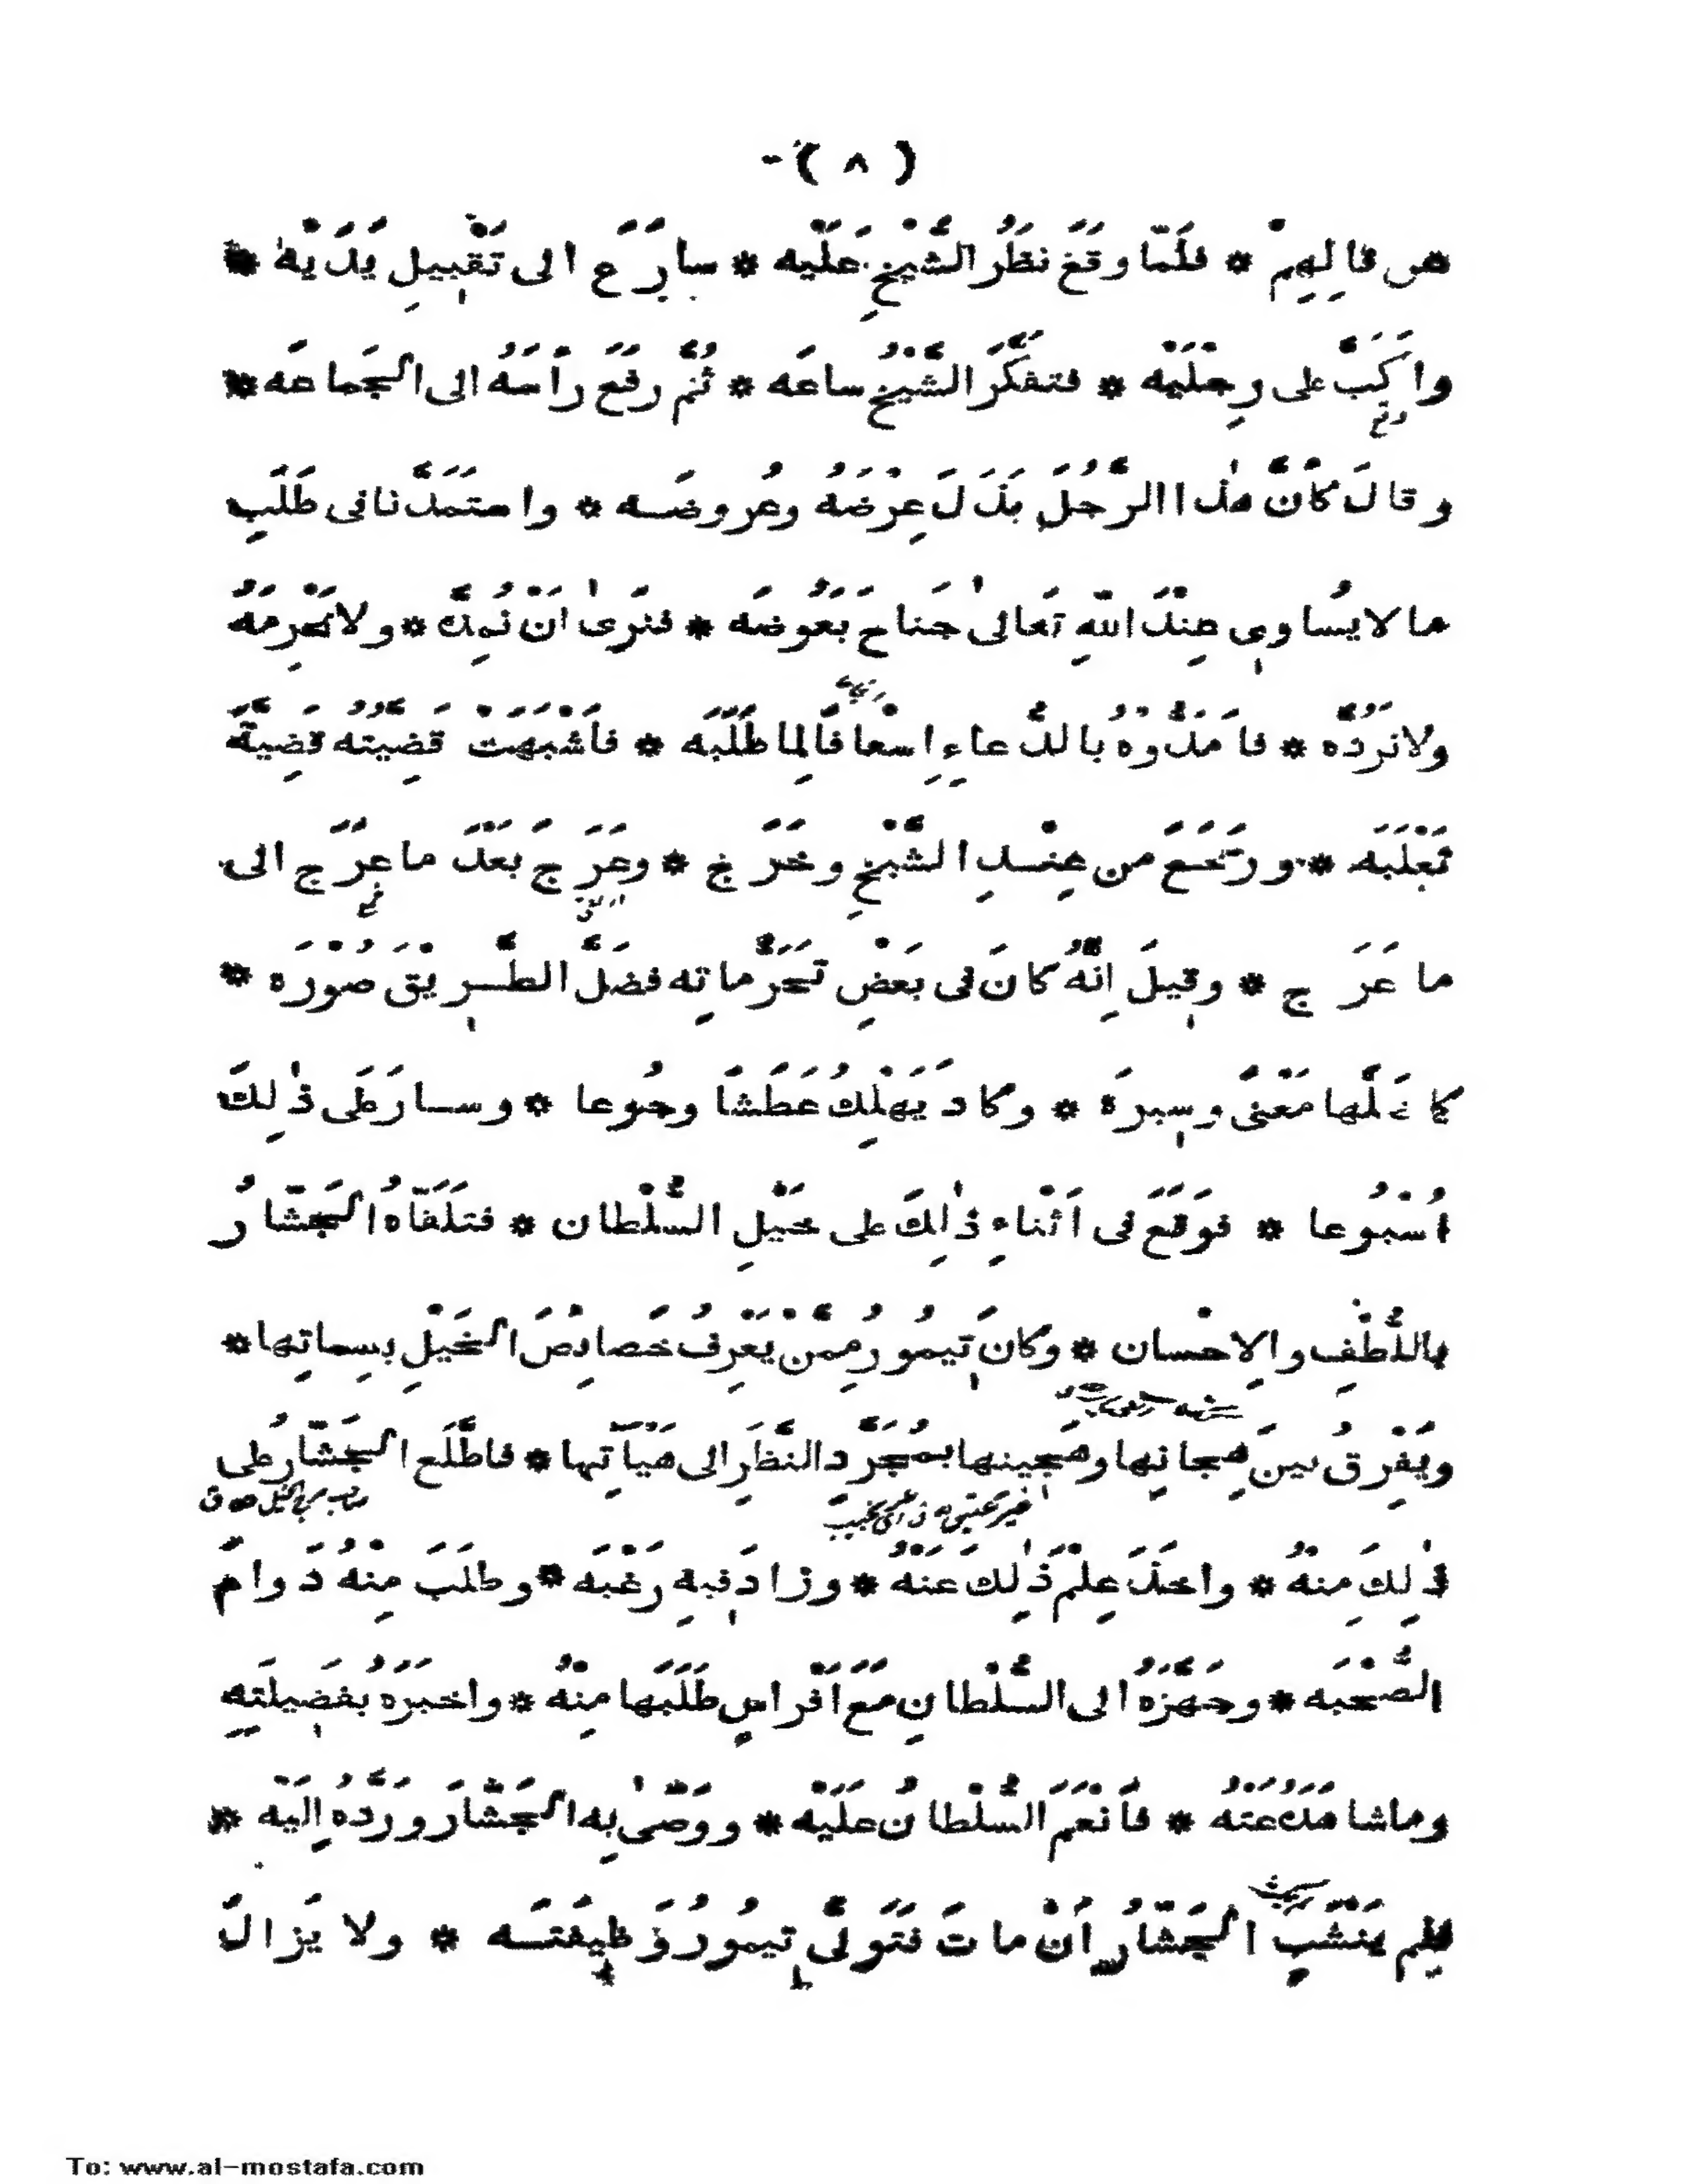 ( ٨ )
عن قالِهِمْ * فلَمّا وقَعَ نظَرُ الشَّيْخِ عَلَيْه * سارَعَ الى تَقْبيلِ يَدَيْه *
واكَبَّ على رِجْلَيْه * فتفَكَّرَ الشَّيْخُ ساعَه * ثُمَّ رفَعَ رأسَهُ الى الجَماعَه *
وقالَ كانَّ هٰذا الرَّجُلَ بَذَلَ عِرْضَهُ وعُروضَه * واستَمَدَّنا فى طَلَبِ
ما لا يُساوِى عِنْدَ اللّٰهِ تَعالىٰ جَناحَ بَعُوضَه * فنَرىٰ اَنْ نُمِدَّه * ولا نَحْرِمَهُ
ولا نَرُدَّه * فاَمَدُّوهُ بالدُّعاءِ اِسْعافًا لِما طَلَبَه * فاَشْبَهَتْ قَضِيَّتُه قَضِيَّةَ
ثَعْلَبَه * ورَجَعَ من عِنْدِ الشَّيْخِ وخَرَج * وعَرَجَ بَعْدَ ما عرَجَ الى
ما عَرَج * وقِيلَ اِنَّهُ كانَ فى بَعْضِ تَحَرُّماتِه فضَلَّ الطَّرِيْقَ صُوْرَه *
كما ضَلَّها مَعْنىً وسِيرَة * وكادَ يَهْلِكُ عَطَشًا وجُوعا * وسارَ على ذٰلِكَ
اُسْبُوعا * فوَقَعَ فى اَثْناءِ ذٰلِكَ على خَيْلِ السُّلْطان * فتلَقّاهُ الجَشّارُ
باللُّطْفِ والاِحْسان * وكانَ تِيمُورُ مِمَّنْ يَعْرِفُ خَصائِصَ الخَيْلِ بسِماتِها *
ويَفْرِقُ بينَ هِجانِها وهَجِينها بمُجَرَّدِ النَّظَرِ الى هَيْآتِها * فاطَّلَع الجَشّارُ على
ذٰلِكَ مِنهُ * واخَذَ عِلْمَ ذٰلِكَ عَنْهُ * وزادَ فيهِ رَغْبَه * وطلَبَ مِنْهُ دَوامَ
الصُّحْبَه * وجَهَّزَهُ الى السُّلْطانِ مَعَ اَفْراسٍ طَلَبَها مِنْهُ * واخبَرَهُ بفَضِيلَتِهِ
وما شاهَدَ عَنْهُ * فاَنْعَمَ السُّلْطانُ عَلَيْه * ووَصّىٰ بِه الجَشّارَ ورَدَّهُ اِلَيْه *
فلم يَنْشَبِ الجَشّارُ اَنْ ماتَ فتَوَلَّى تِيمُورُ وَظِيفَتَه * ولا يَزالُ
To: www.al-mostafa.com